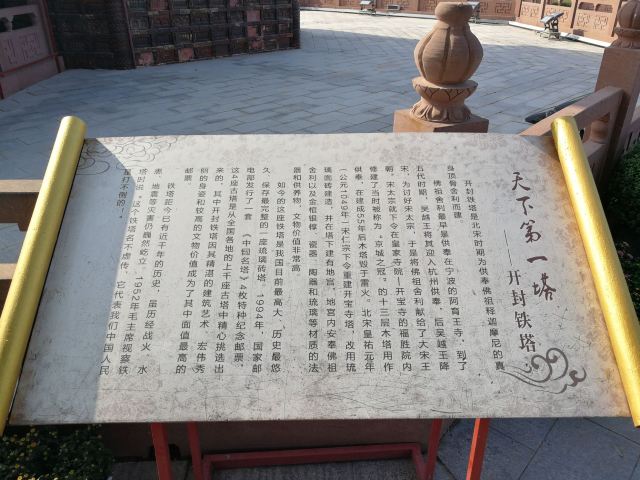 天下第一塔
——开封铁塔
开封铁塔是北宋时期为供奉佛祖释迦摩尼的真
身顶骨舍利而建。
佛祖舍利最早是供奉在宁波的阿育王寺，到了
五代时期，吴越王将其迎入杭州供奉，后吴越王降
宋，为讨好宋太宗，于是将佛祖舍利献给了大宋王
朝，宋太宗就下令在皇家寺院—开宝寺的福胜院内
修建了当时被称为“京城之冠”的十三层木塔用作
供奉，在建成55年后木塔毁于雷火，北宋皇祐元年
（公元1049年）宋仁宗下令重建开宝寺塔，改用琉
璃面砖建造，并在塔下建有地宫，地宫内安奉佛祖
舍利以及金棺银椁、瓷器、陶器和琉璃等材质的法
器和供养物，文物价值非常高。
如今的这座铁塔是我国目前最高大、历史最悠
久、保存最完整的一座琉璃砖塔，1994年，国家邮
电部发行了一套《中国名塔》4枚特种纪念邮票，
这4座古塔是从全国各地的上千座古塔中精心挑选出
来的，其中开封铁塔因其精湛的建筑艺术、宏伟秀
丽的身姿和较高的文物价值成为了其中面值最高的
邮票。
铁塔距今已有近千年的历史，虽历经战火、水
患、地震等灾害仍巍然屹立，1952年毛主席视察铁
塔时说“这个铁塔名不虚传，它代表我们中国人民
是打不倒的！”